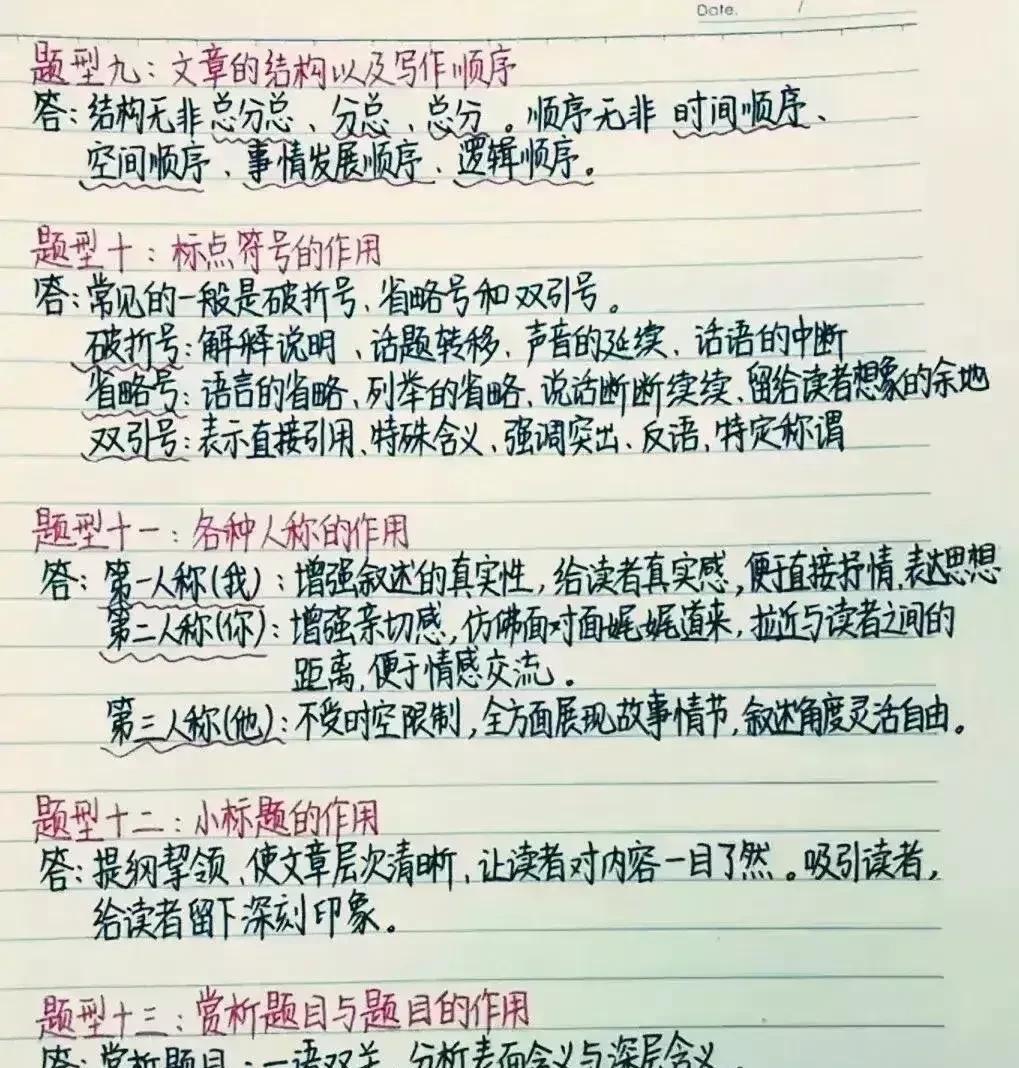 Date. /
题型九：文章的结构以及写作顺序
答：结构无非总分总、分总、总分。顺序无非 时间顺序、
空间顺序、事情发展顺序、逻辑顺序。
题型十：标点符号的作用
答：常见的一般是破折号、省略号和双引号。
破折号：解释说明、话题转移、声音的延续、话语的中断
省略号：语言的省略、列举的省略、说话断断续续、留给读者想象的余地
双引号：表示直接引用、特殊含义、强调突出、反语,特定称谓
题型十一：各种人称的作用
答：第一人称(我)：增强叙述的真实性，给读者真实感，便于直接抒情,表达思想
第二人称(你)：增强亲切感，仿佛面对面娓娓道来，拉近与读者之间的
距离,便于情感交流。
第三人称(他)：不受时空限制，全方面展现故事情节，叙述角度灵活自由。
题型十二：小标题的作用
答：提纲挈领、使文章层次清晰、让读者对内容一目了然。吸引读者，
给读者留下深刻印象。
题型十三：赏析题目与题目的作用
答：赏析题目：一语双关，分析表面含义与深层含义。